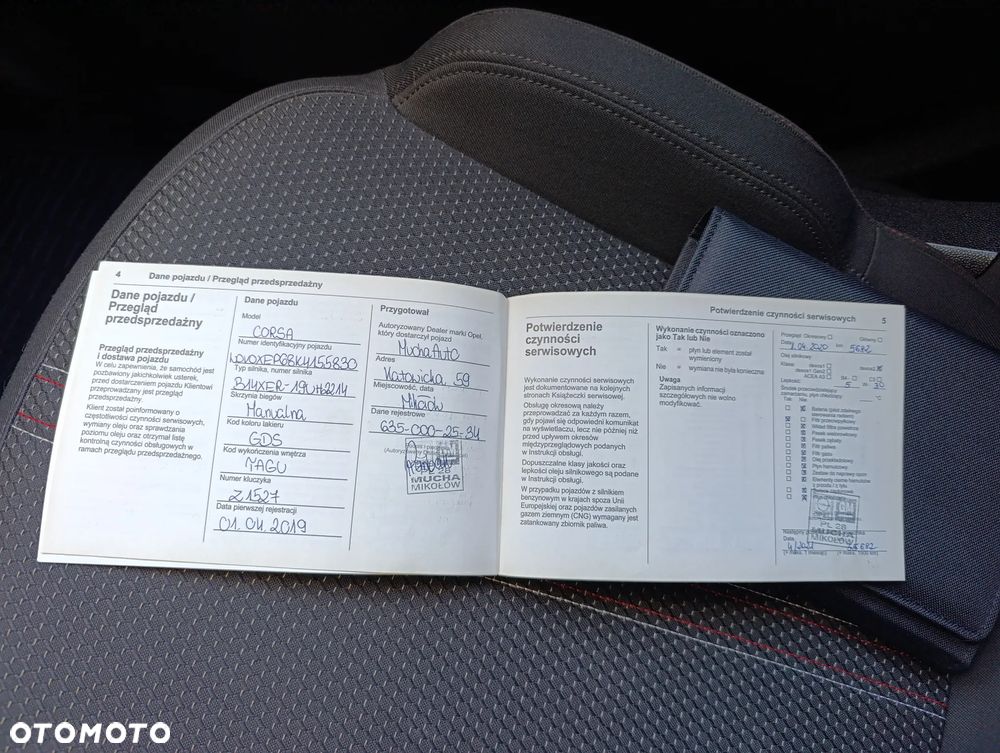 4 Dane pojazdu / Przegląd przedsprzedażny
Dane pojazdu /
Przegląd
przedsprzedażny
Przegląd przedsprzedażny
i dostawa pojazdu
W celu zapewnienia, że samochód jest
pozbawiony jakichkolwiek usterek,
przed dostarczeniem pojazdu Klientowi
przeprowadzany jest przegląd
przedsprzedażny.
Klient został poinformowany o
częstotliwości czynności serwisowych,
wymiany oleju oraz sprawdzania
poziomu oleju oraz otrzymał listę
kontrolną czynności obsługowych w
ramach przeglądu przedsprzedażnego.
Dane pojazdu
Model
CORSA
Numer identyfikacyjny pojazdu
W0V0XEP68K4155830
Typ silnika, numer silnika
Skrzynia biegów
Manualna
Kod koloru lakieru
GDS
Kod wykończenia wnętrza
TAGU
Numer kluczyka
Z1527
Data pierwszej rejestracji
01.04.2019
Przygotował
Autoryzowany Dealer marki Opel,
który dostarczył pojazd
Mucha Auto
Adres
Katowicka 59
Miejscowość, data
Mikołów
Dane rejestrowe
635-000-25-34
PL 28
MUCHA
MIKOŁÓW
Potwierdzenie czynności serwisowych 5
Potwierdzenie
czynności
serwisowych
Wykonanie czynności serwisowych
jest dokumentowane na kolejnych
stronach Książeczki serwisowej.
Obsługę okresową należy
przeprowadzać za każdym razem,
gdy pojawi się odpowiedni komunikat
na wyświetlaczu, lecz nie później niż
przed upływem okresów
międzyprzeglądowych podanych
w Instrukcji obsługi.
Dopuszczalne klasy jakości oraz
lepkości oleju silnikowego są podane
w Instrukcji obsługi.
W przypadku pojazdów z silnikiem
benzynowym w krajach spoza Unii
Europejskiej oraz pojazdów zasilanych
gazem ziemnym (CNG) wymagany jest
zatankowany zbiornik paliwa.
Wykonanie czynności oznaczono
jako Tak lub Nie
Tak = płyn lub element został
wymieniony
Nie = wymiana nie była konieczna
Uwaga
Zapisanych informacji
szczegółowych nie wolno
modyfikować.
Przegląd: Okresowy Główny
Data 1.04.2020 km 5672
Olej silnikowy
Klasa: dexos1 dexos2
dexos1 Gen2
ACEA A3
Lepkość: 5 W 30
Tak Nie
Filtr przeciwpyłkowy
Wkład filtra powietrza
Pasek wielorowkowy
Pasek zębaty
Filtr paliwa
Filtr gazu
Olej przekładniowy
Płyn hamulcowy
Zestaw do naprawy opon
Elementy cierne hamulców
z przodu / z tyłu
PL 28
MUCHA
MIKOŁÓW
Data
4/2021
OTOMOTO